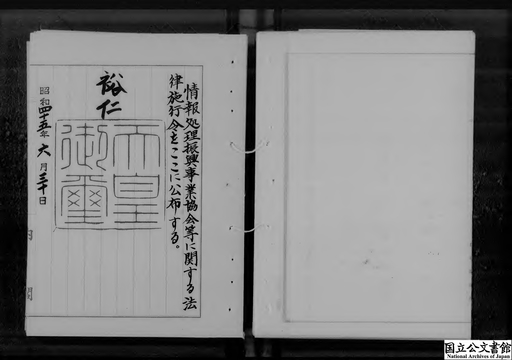 情報処理振興事業協会等に関する法
律施行令をここに公布する。
裕仁
天皇
御璽
昭和四十五年六月三十日
国立公文書館
National Archives of Japan